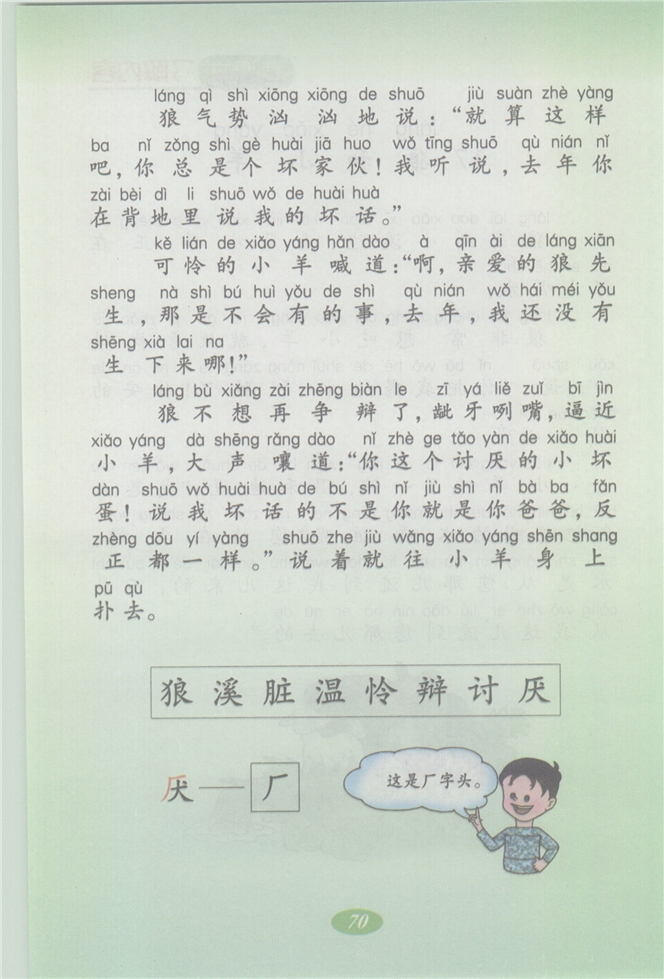 láng qì shì xiōng xiōng de shuō jiù suàn zhè yàng
狼气势汹汹地说：“就算这样
ba nǐ zǒng shì gè huài jiā huo wǒ tīng shuō qù nián nǐ
吧，你总是个坏家伙！我听说，去年你
zài bèi dì li shuō wǒ de huài huà
在背地里说我的坏话。”
kě lián de xiǎo yáng hǎn dào à qīn ài de láng xiān
可怜的小羊喊道：“啊，亲爱的狼先
sheng nà shì bú huì yǒu de shì qù nián wǒ hái méi yǒu
生，那是不会有的事，去年，我还没有
shēng xià lai na
生下来哪！”
láng bù xiǎng zài zhēng biàn le zī yá liě zuǐ bī jìn
狼不想再争辩了，龇牙咧嘴，逼近
xiǎo yáng dà shēng rǎng dào nǐ zhè ge tǎo yàn de xiǎo huài
小羊，大声嚷道：“你这个讨厌的小坏
dàn shuō wǒ huài huà de bú shì nǐ jiù shì nǐ bà ba fǎn
蛋！说我坏话的不是你就是你爸爸，反
zhèng dōu yí yàng shuō zhe jiù wǎng xiǎo yáng shēn shang
正都一样。”说着就往小羊身上
pū qù
扑去。
狼溪脏温怜辩讨厌
厌——厂
这是厂字头。
70